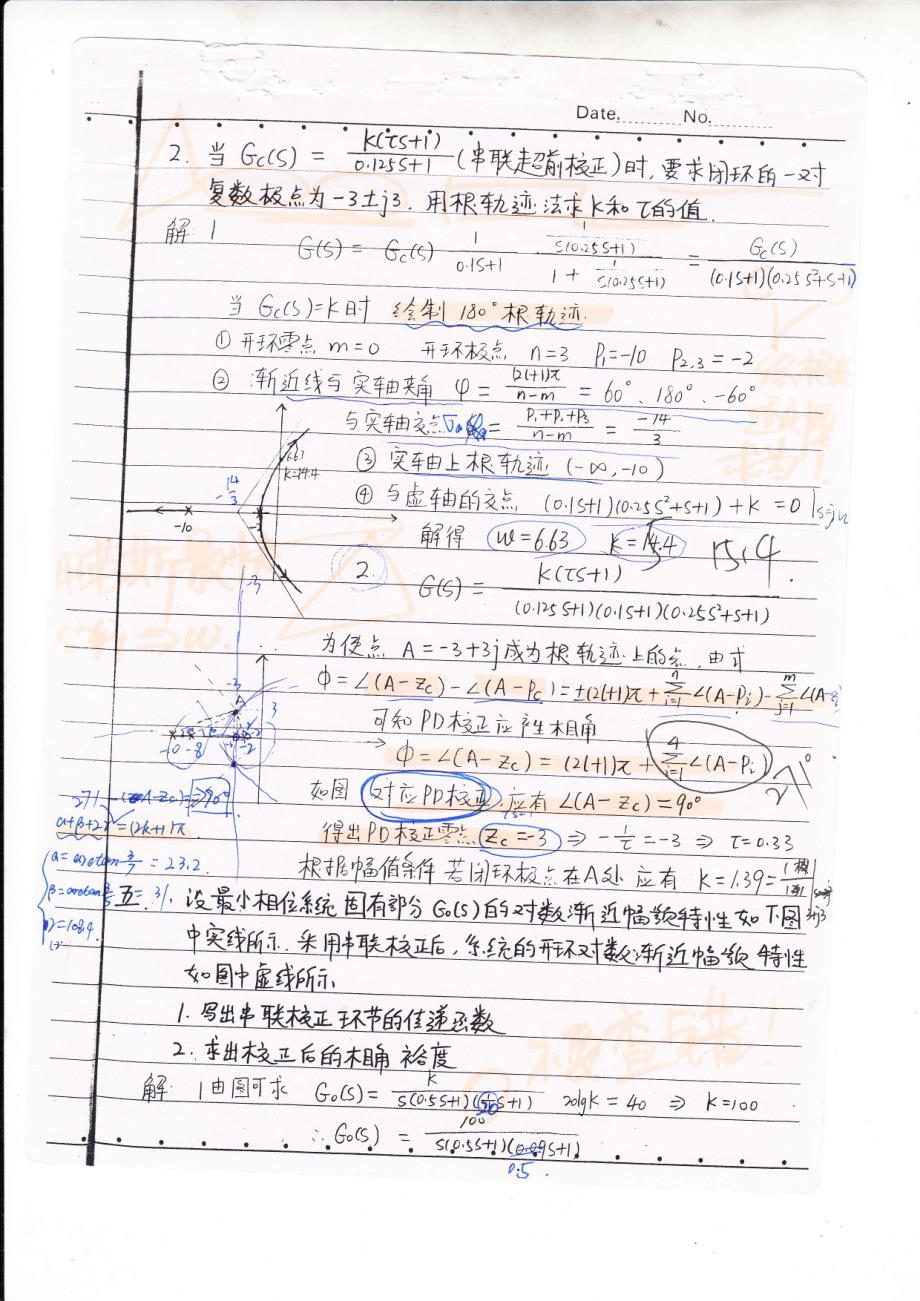 Date. No.
2. 当 Gc(S) = K(τS+1) / 0.125S+1 (串联超前校正)时, 要求闭环的一对
复数极点为 -3±j3. 用根轨迹法求K和τ的值.
解: 1
G(S) = Gc(S) 1/(0.1S+1) · [1/(S(0.25S+1))] / [1 + 1/(S(0.25S+1))] = Gc(S) / (0.1S+1)(0.25S²+S+1)
当 Gc(S)=K时 绘制 180° 根轨迹.
① 开环零点 m=0 开环极点 n=3 P1=-10 P2,3=-2
② 渐近线与实轴夹角 φ = (2l+1)π / n-m = 60°、180°、-60°
与实轴交点 σa = P1+P2+P3 / n-m = -14/3
③ 实轴上根轨迹 (-∞,-10)
④ 与虚轴的交点 (0.1S+1)(0.25S²+S+1)+K =0 |s=jw
解得 w=6.63 K=14.4 15.4.
6.63
K=14.4
-14/3
-10
2. G(S) = K(τS+1) / (0.125S+1)(0.1S+1)(0.25S²+S+1)
为使点 A=-3+3j成为根轨迹上的点, 由式
Φ=∠(A-Zc)-∠(A-Pc)=±(2l+1)π+Σ∠(A-Pi)-Σ∠(A-Zi)
可知PD校正应产生相角
Φ=∠(A-Zc)=(2l+1)π+Σ∠(A-Pi) 271°
-3
A
3
-10 -8
-2
如图 对应PD校正, 应有∠(A-Zc)=90°
得出PD校正零点 Zc=-3 ⇒ -1/τ=-3 ⇒ τ=0.33
根据幅值条件 若闭环极点在A处 应有 K=1.39=
271-∠(A-Zc)=>90°
α+β+2γ=(2k+1)π
α=arctan 3/7=23.2
β=arctan 3/5=31
γ=108.4
五. 设最小相位系统固有部分G0(S)的对数渐近幅频特性如下图
中实线所示. 采用串联校正后, 系统的开环对数渐近幅频特性
如图中虚线所示
1. 写出串联校正环节的传递函数
2. 求出校正后的相角裕度
解: 1由图可求 G0(S)= K / S(0.5S+1)(1/20 S+1) 20lgK=40 ⇒ K=100
∴G0(S) = 100 / S(0.5S+1)(0.09S+1)
0.5.